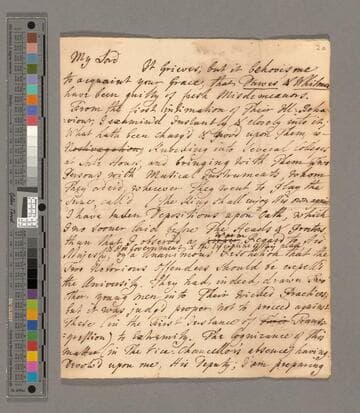 20
My Lord
It Grieves, but it behoves me
to acquaint your Grace, That Dawes & Whitmore
have been guilty of fresh Misdemeanors.
From the first Intimation of Their Ill-Beha-
viour, I examin'd Instantly & closely into it;
What hath been charg'd & prov'd upon Them is
Intruding into several colleges
at late Hours, and bringing with Them Two
Persons with Musical Instruments, whom
They order'd, wherever They went to Play the
Tune, call'd The King shall enjoy his own again
I have taken Depositions upon Oath, which
I no sooner laid before The Heads & Doctors,
than had Inserted as
Majesty, by a Unanimous Resolution that the
Two Notorious Offenders should be expell'd
the University. They had, indeed, drawn Two
other young men into Their Wicked Practices,
but it was judg'd proper not to proceed against
These (in the First Instance of Trans-
gression) to Extremity. The Cognizance of this
matter, in The Vice-Chancellor's absence, having
Devolv'd upon me, His Deputy; I am preparing